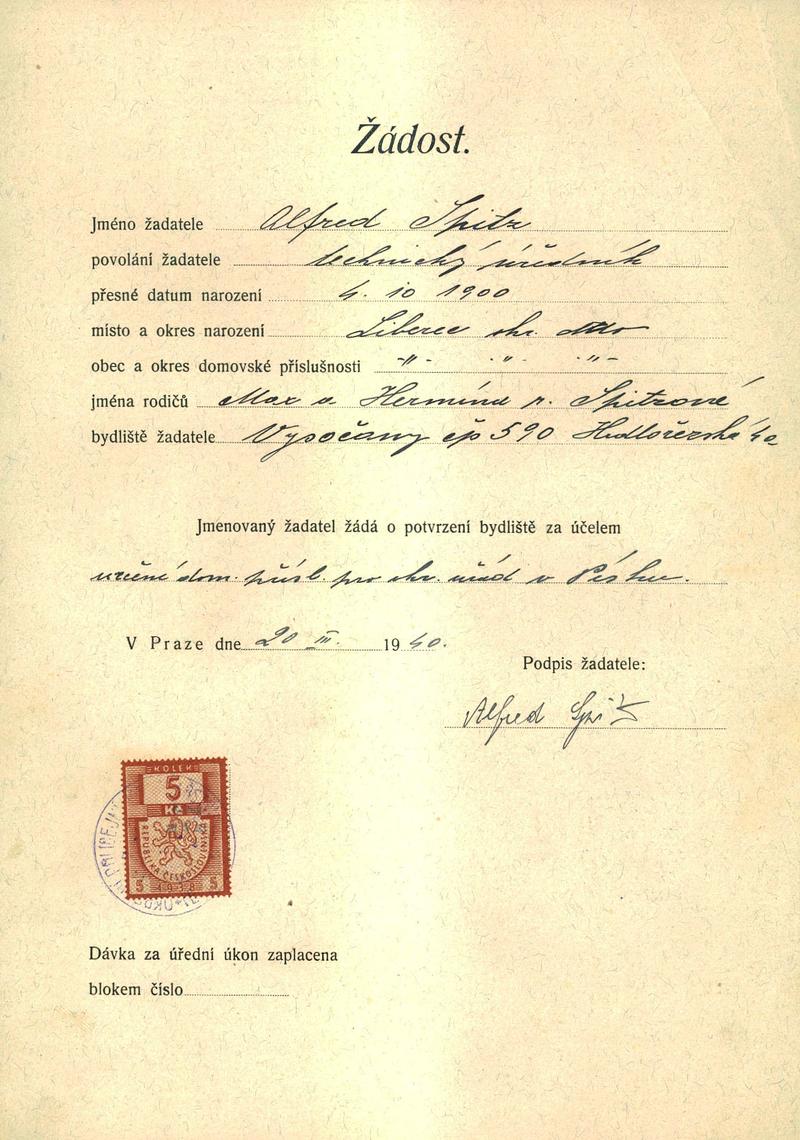 Žádost.
Jméno žadatele Alfred Spitz
povolání žadatele technický úředník
přesné datum narození 4. 10 1900
místo a okres narození Liberec okr. dtto
obec a okres domovské příslušnosti -"- -"- -"-
jména rodičů Max a Hermína r. Spitzové
bydliště žadatele Vysočany čp 590 Hrdlořezská 4a
Jmenovaný žadatel žádá o potvrzení bydliště za účelem
určení dom. přísl. pro okr. úřad v Písku.
V Praze dne 20 III. 1940.
Podpis žadatele:
Alfred Spitz
KOLEK
5
Kč
REPUBLIKA ČESKOSLOVENSKÁ
5 1938 5
Dávka za úřední úkon zaplacena
blokem číslo